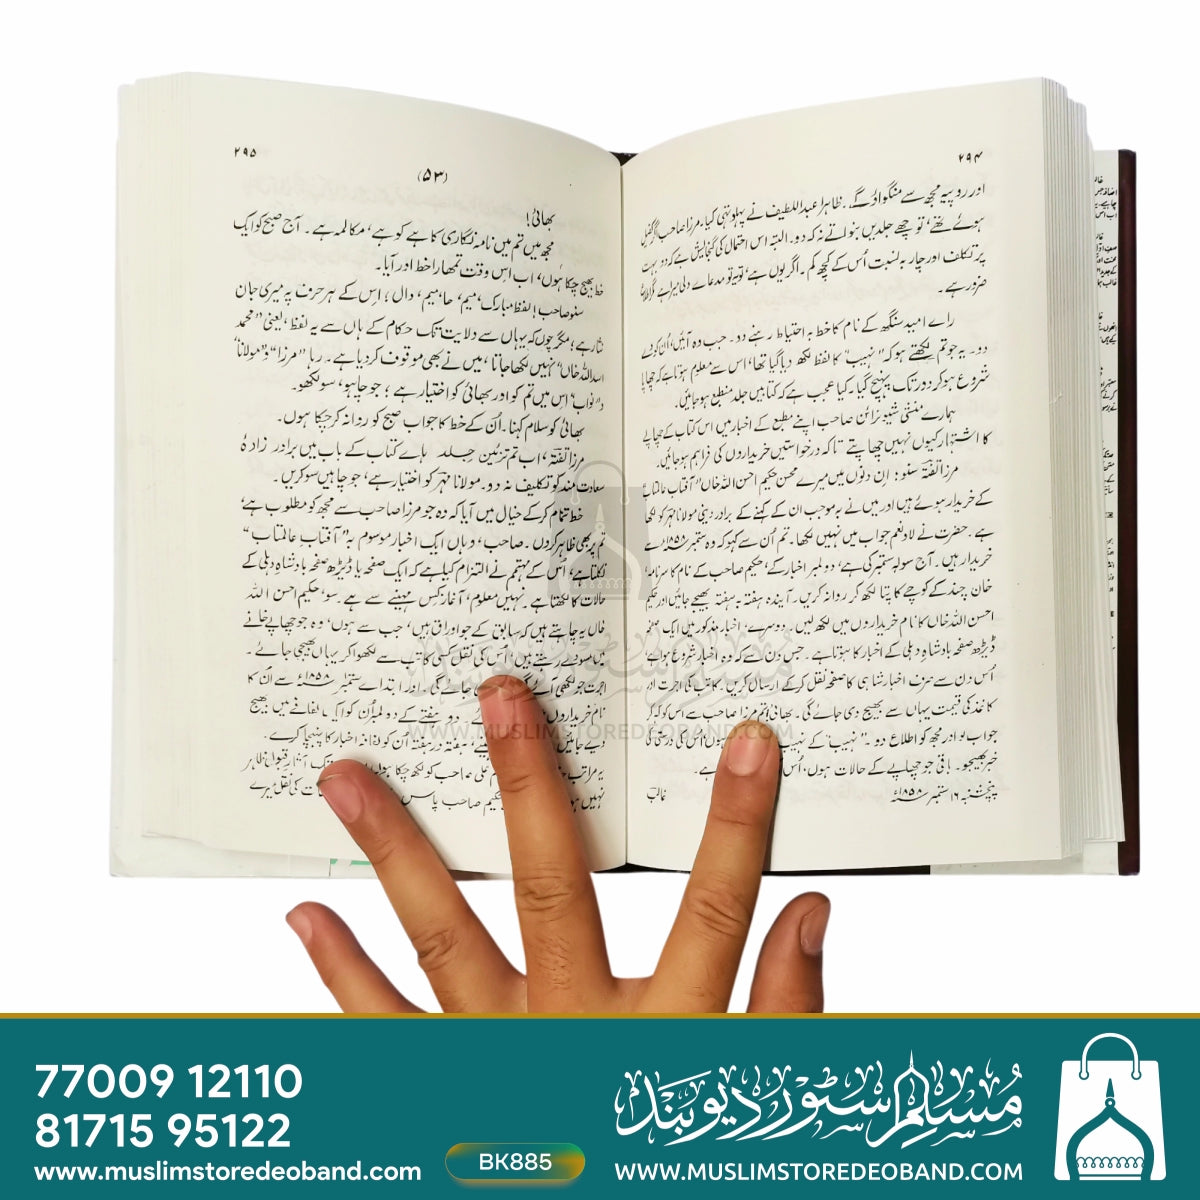 ۲۹۴
اور روپیہ مجھ سے منگواؤ گے۔ ظاہرا عبداللطیف نے پہلو تہی کیا، مرزا صاحب
ہوئے تھے، تو چھے جلدیں بنوا لتے نہ کہ دو۔ البتہ اس احتمال کی گنجایش ہے کہ دو بہت
پر تکلف اور چار بہ نسبت اُس کے کچھ کم۔ اگر یوں ہے، تو یہ تو مدعاے دلی میرا ہے
ضرور ہے۔
راے امید سنگھ کے نام کا خط بہ احتیاط رہنے دو۔ جب وہ آئیں، اُن کو دے
دو۔ یہ جو تم لکھتے ہو کہ "نہیب" کا لفظ لکھ دیا گیا تھا، اس سے معلوم ہوتا ہے کہ چھاپا
شروع ہو کر دور تک پہنچ گیا۔ کیا عجب ہے کہ کتابیں جلد منطبع ہو جائیں۔
ہمارے منشی شیو نرائن صاحب اپنے مطبع کے اخبار میں اس کتاب کے چھاپے
کا اشتہار کیوں نہیں چھاپتے تاکہ درخواستیں خریداروں کی فراہم ہو جائیں۔
مرزا تفتہ سنو! اِن دنوں میں میرے محسن حکیم احسن اللہ خاں "آفتاب عالمتاب"
کے خریدار ہوئے ہیں اور میں نے بہ موجب ان کے کہنے کے برادر دینی مولانا مہر کو لکھا
ہے۔ حضرت نے لا و نعم جواب میں نہیں لکھا۔ تم اُن سے کہو کہ وہ ستمبر ۱۸۵۸ء سے
خریدار ہیں۔ آج سولہ ستمبر کی ہے، دو نمبر اخبار کے، حکیم صاحب کے نام کا سرنامہ،
خان چند کے کوچے کا پتا لکھ کر روانہ کریں۔ آیندہ ہفتہ بہ ہفتہ بھیجے جائیں اور حکیم
احسن اللہ خاں کا نام خریداروں میں لکھ لیں۔ دوسرے، اخبار مذکور میں ایک صفحہ
ڈیڑھ صفحہ بادشاہ دہلی کے اخبار کا ہوتا ہے۔ جس دن سے کہ وہ اخبار شروع ہوا ہے،
اُس دن سے صرف اخبار شاہی کا صفحہ نقل کر کے ارسال کریں۔ کاتب کی اجرت اور
کاغذ کی قیمت یہاں سے بھیج دی جائے گی۔ بھائی، تم مرزا صاحب سے اس کو کہہ کر
جواب لو اور مجھ کو اطلاع دو۔ "نہیب" کے نہیب اُس کی درستی کی
خبر بھیجو۔ باقی جو چھاپے کے حالات ہوں، اُس ہے۔
پنجشنبہ ۱۶ ستمبر ۱۸۵۸ء
غالب
۲۹۵
(۵۳)
بھائی!
مجھ میں تم میں نامہ نگاری کا ہے کو ہے، مکالمہ ہے۔ آج صبح کو ایک
خط بھیج چکا ہوں، اب اس وقت تمھارا خط اور آیا۔
سنو صاحب! لفظ مبارک، میم، حا، میم، دال؛ اس کے ہر حرف پہ میری جان
نثار ہے؛ مگر چوں کہ یہاں سے ولایت تک حکام کے ہاں سے یہ لفظ، یعنی "محمد
اسد اللہ خاں" نہیں لکھا جاتا، میں نے بھی موقوف کر دیا ہے۔ رہا "مرزا" و "مولانا"
و "نواب" اس میں تم کو اور بھائی کو اختیار ہے؛ جو چاہو، سو لکھو۔
بھائی کو سلام کہنا۔ اُن کے خط کا جواب صبح کو روانہ کر چکا ہوں۔
مرزا تفتہ، اب تم تزئین جلد ہاے کتاب کے باب میں برادر زادۂ
سعادت مند کو تکلیف نہ دو۔ مولانا مہر کو اختیار ہے، جو چاہیں سو کریں۔
خط تمام کر کے خیال میں آیا کہ وہ جو مرزا صاحب سے مجھ کو مطلوب ہے،
تم پر بھی ظاہر کروں۔ صاحب، وہاں ایک اخبار موسوم بہ "آفتاب عالمتاب"
نکلتا ہے، اُس کے مہتمم نے التزام کیا ہے کہ ایک صفحہ یا ڈیڑھ صفحہ بادشاہ دہلی کے
حالات کا لکھتا ہے۔ نہیں معلوم، آغاز کس مہینے سے ہے۔ سو، حکیم احسن اللہ
خاں یہ چاہتے ہیں کہ سابق کے جو اوراق ہیں، جب سے ہوں، وہ جو چھاپے خانے
میں مسودے رہتے ہیں، اُس کی نقل کسی کاتب سے لکھوا کر یہاں بھیجی جائے۔
اجرت جو لکھی آئے گی جائے گی۔ اور ابتداے ستمبر ۱۸۵۸ء سے اُن کا
نام خریداروں دو ہفتے کے دو نمبر اُن کو ایک لفافے میں بھیج
دیے جائیں ہفتہ در ہفتہ اُن کو لفافہ اخبار کا پہنچا کرے۔
یہ مراتب علی صاحب کو لکھ چکا ہوں آثار قبول ظاہر
نہیں ہو حکیم صاحب پاس کی نقل میرے
مسلم سٹور دیوبند
WWW.MUSLIMSTOREDEOBAND.COM
77009 12110
81715 95122
www.muslimstoredeoband.com
BK885
مسلم سٹور دیوبند
WWW.MUSLIMSTOREDEOBAND.COM